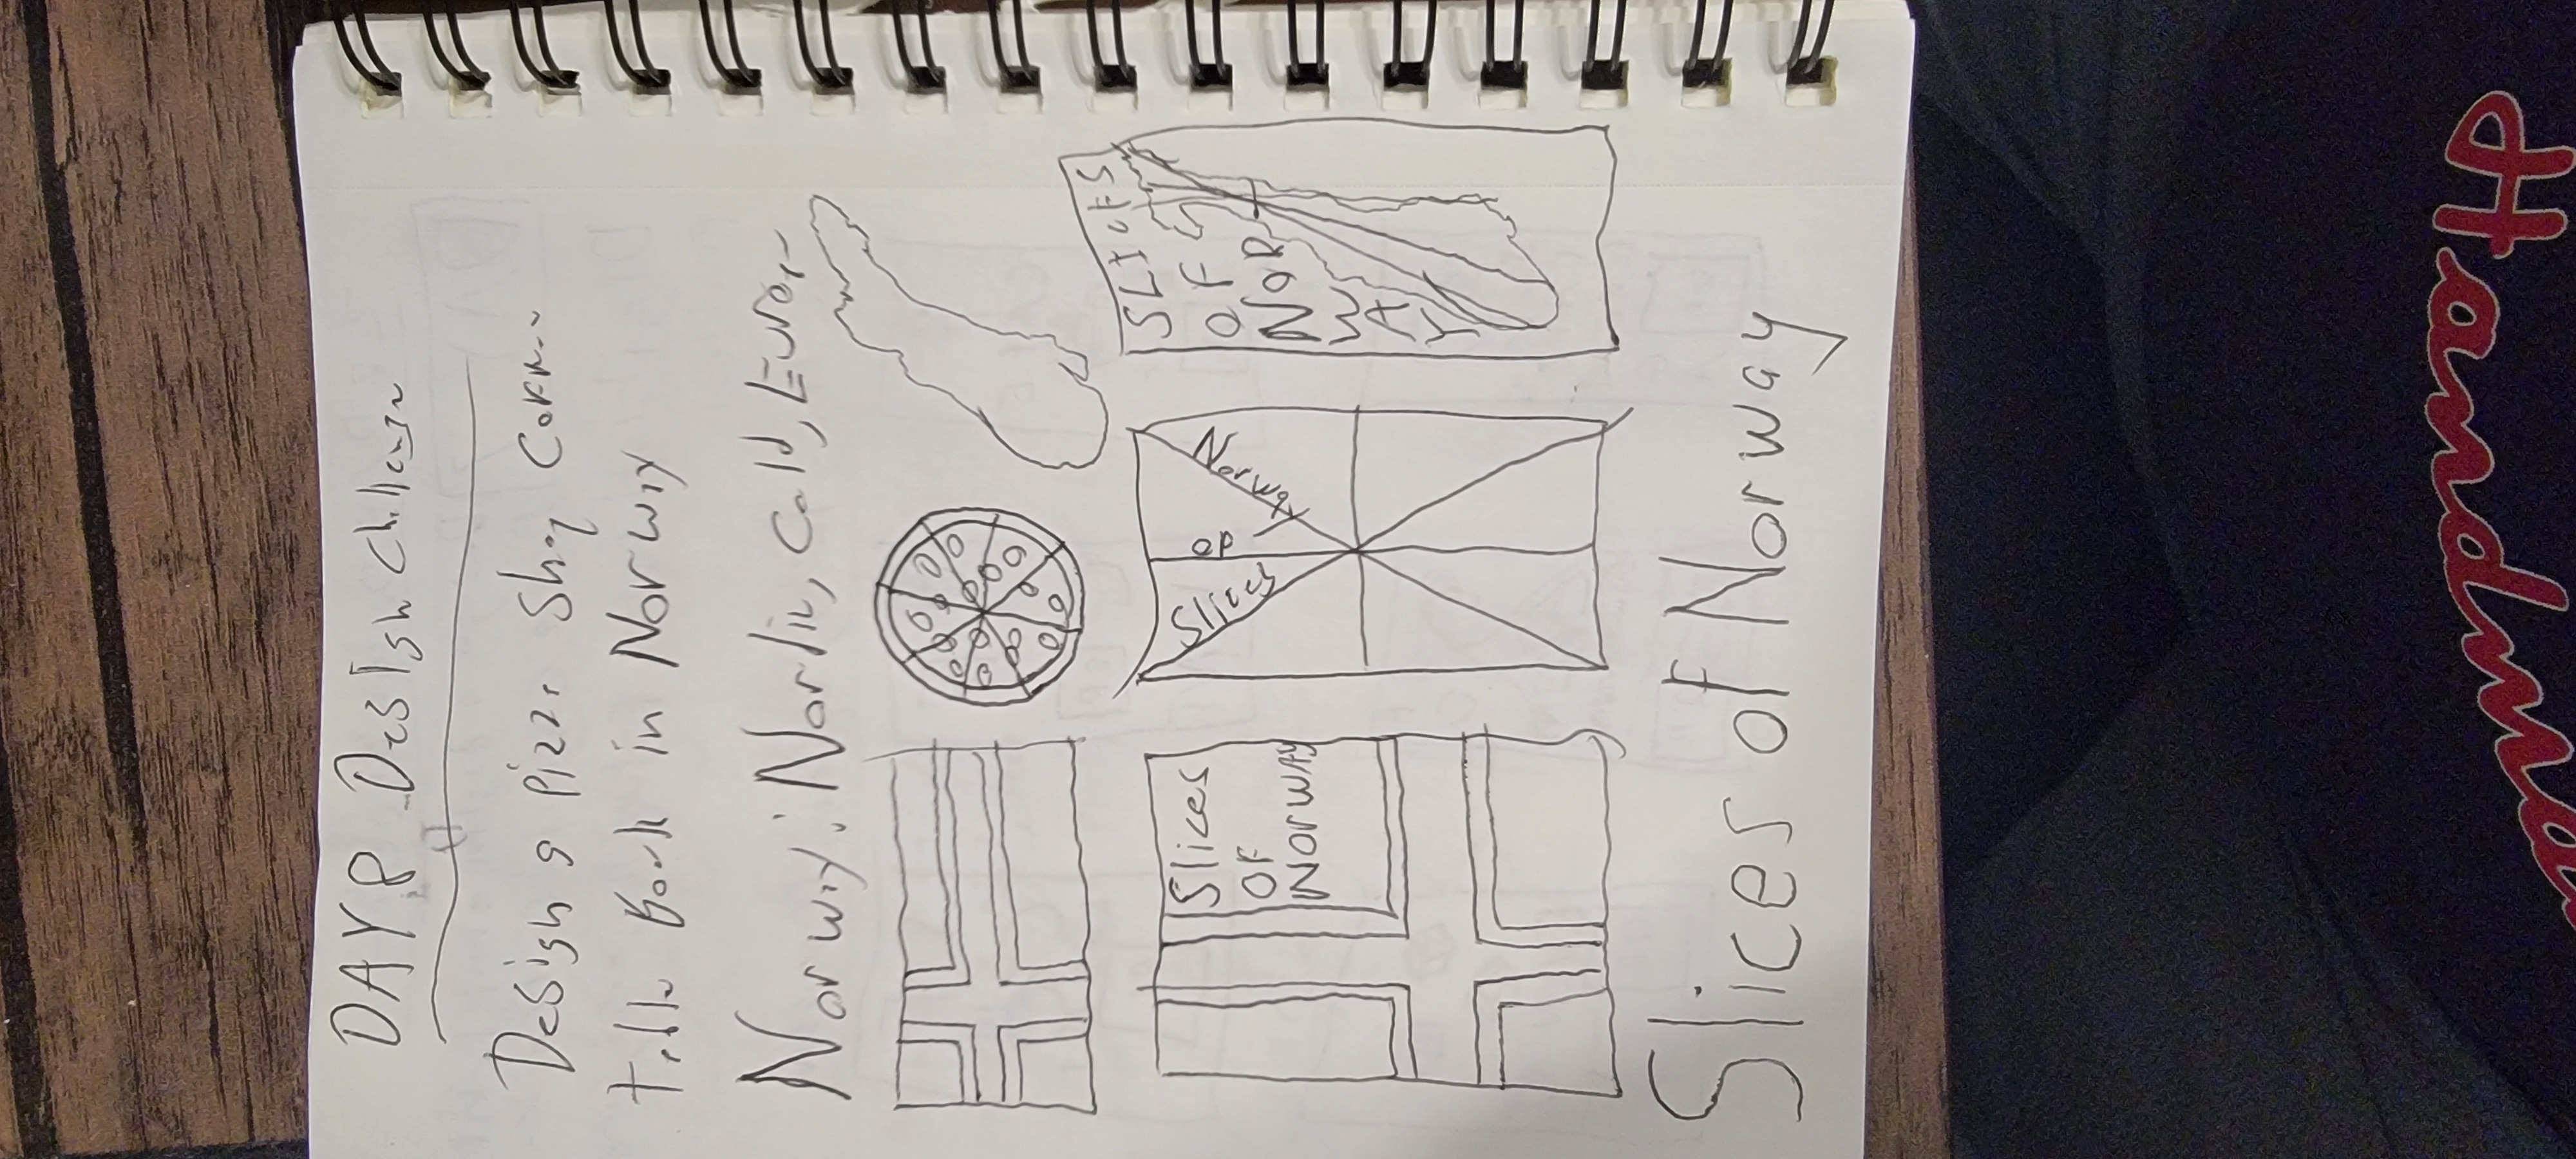 DAY 8 Design Challenge
Design a pizza shop
table book in Norway
Norway: Nordic, Cold, Europe
Slices
OF
NORWAY
Slices
OF
Norway
SLICES
OF
NOR
W
A
Y
Slices of Norway
Handm